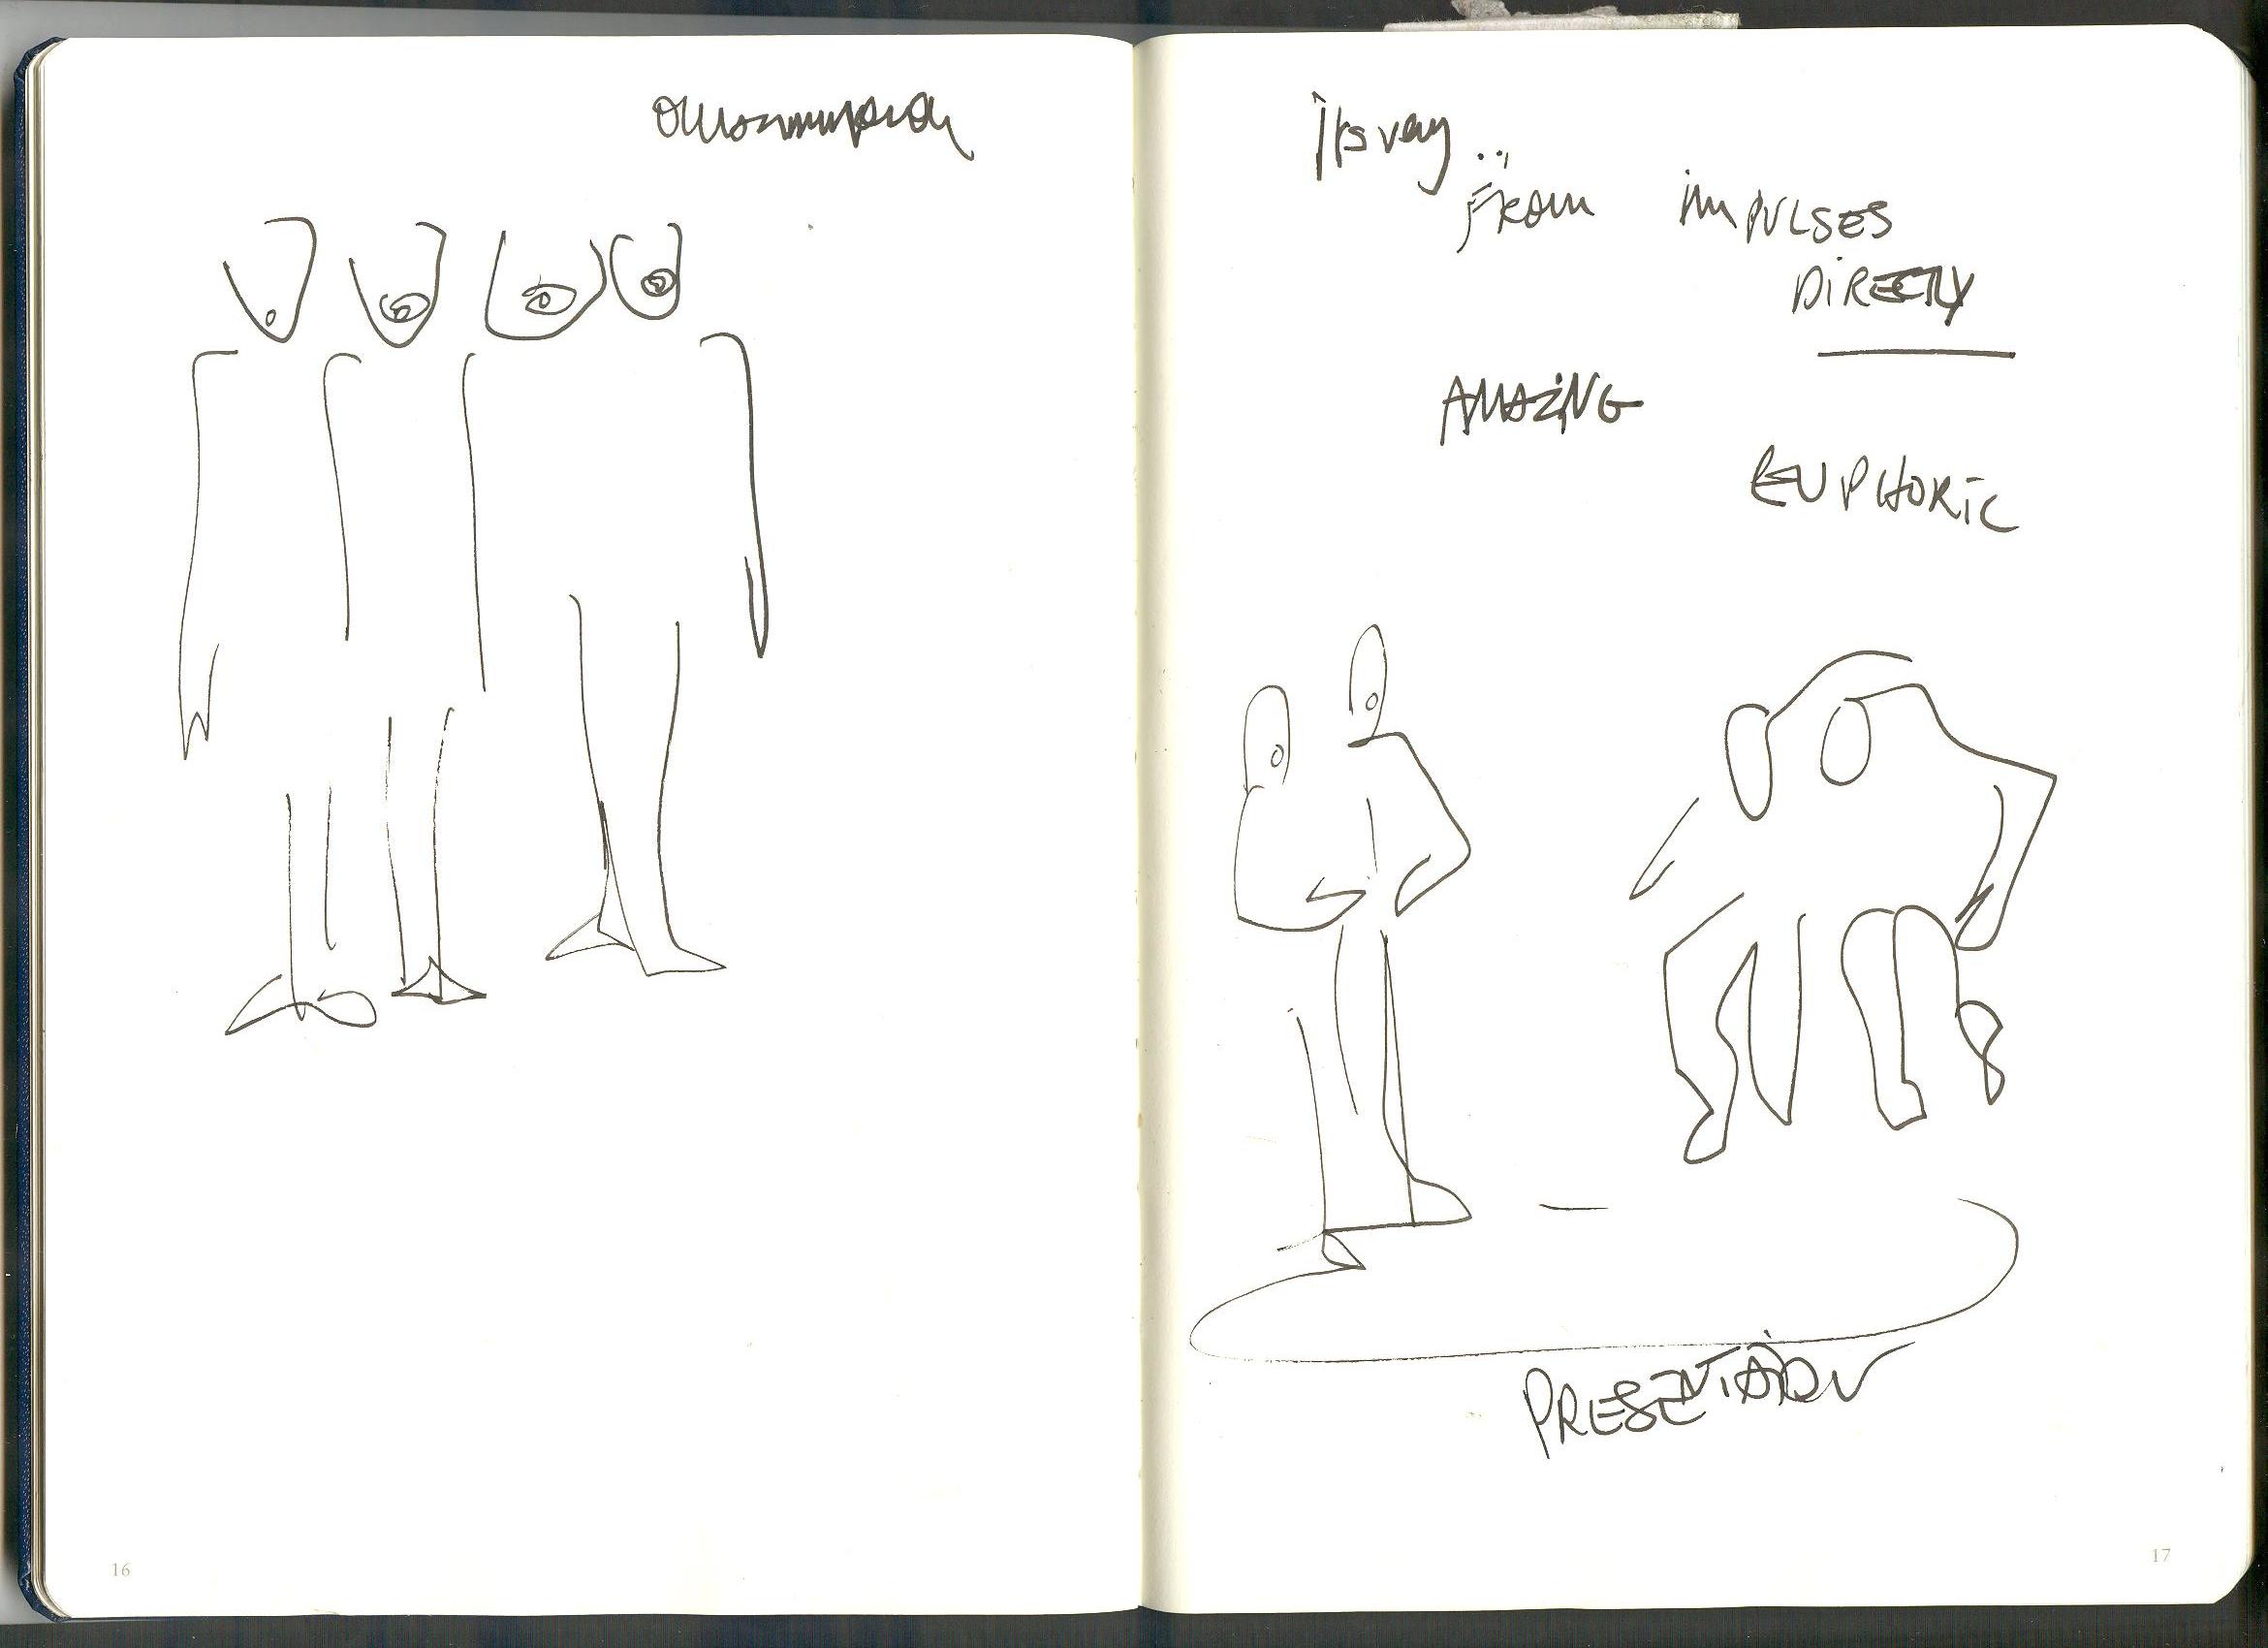 Its very ..
FROM IMPULSES
DIRECTLY
AMAZING
EUPHORIC
PRESENTATION
16
17